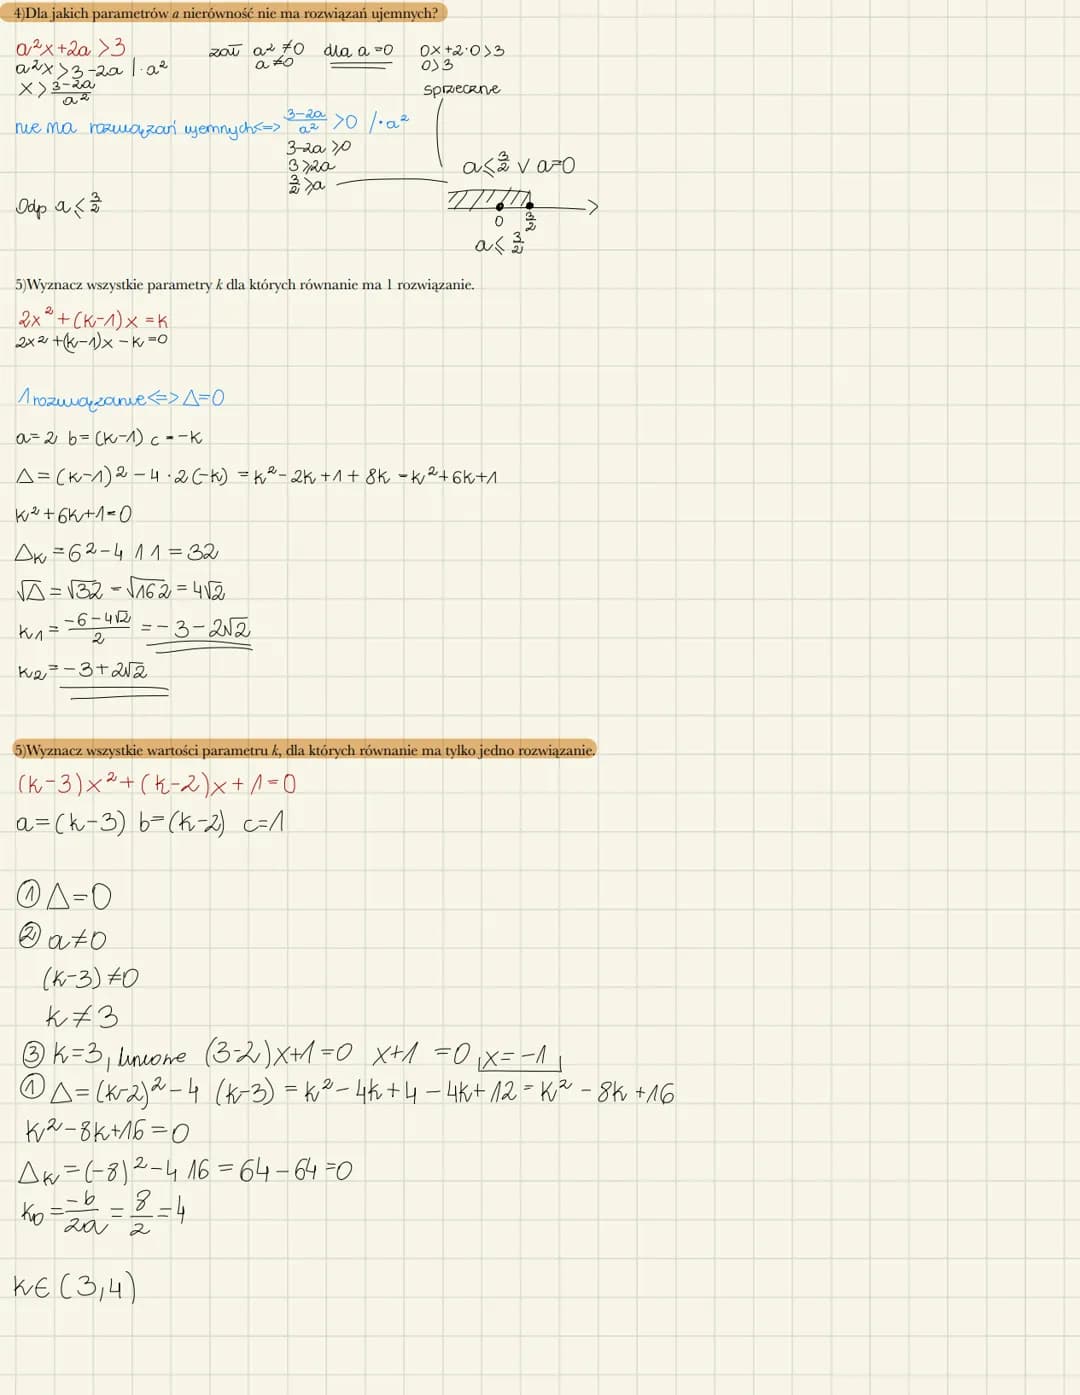 4)Dla jakich parametrów a nierówność nie ma rozwiązań ujemnych?
a²x+2a >3 zał a² ≠0 dla a =0 0x+2·0>3
a²x>3-2a |·a² a ≠0 0>3
x> \frac{3-2a}{a²} sprzeczne
nie ma rozwiązań ujemnych<=> \frac{3-2a}{a²} >0 /·a²
3-2a ⩾0
3⩾2a a⩽\frac{3}{2} ∨ a=0
\frac{3}{2}⩾a
Odp a⩽\frac{3}{2}
0 \frac{3}{2}
a⩽ \frac{3}{2}
5)Wyznacz wszystkie parametry k dla których równanie ma 1 rozwiązanie.
2x²+(k-1)x =k
2x²+(k-1)x -k =0
1 rozwiązanie<=> Δ=0
a= 2 b= (k-1) c =-k
Δ= (k-1)² -4 ·2(-k) =k²-2k +1+ 8k =k²+6k+1
k²+6k+1=0
Δk =6²-4 1 1 = 32
√Δ=√32 =√162 = 4√2
k1 = \frac{-6-4√2}{2} =-3-2√2
k2=-3+2√2
5)Wyznacz wszystkie wartości parametru k, dla których równanie ma tylko jedno rozwiązanie.
(k-3)x²+(k-2)x+1=0
a=(k-3) b=(k-2) c=1
① Δ=0
② a≠0
(k-3) ≠0
k≠3
③ k=3, liniowe (3-2)x+1=0 x+1 =0 x= -1
① Δ= (k-2)²-4 (k-3) = k²-4k+4-4k+12 = k² -8k +16
k²-8k+16=0
Δk =(-8)²-4 16 =64-64=0
k0 = \frac{-b}{2a} = \frac{8}{2} =4
k∈ (3,4)